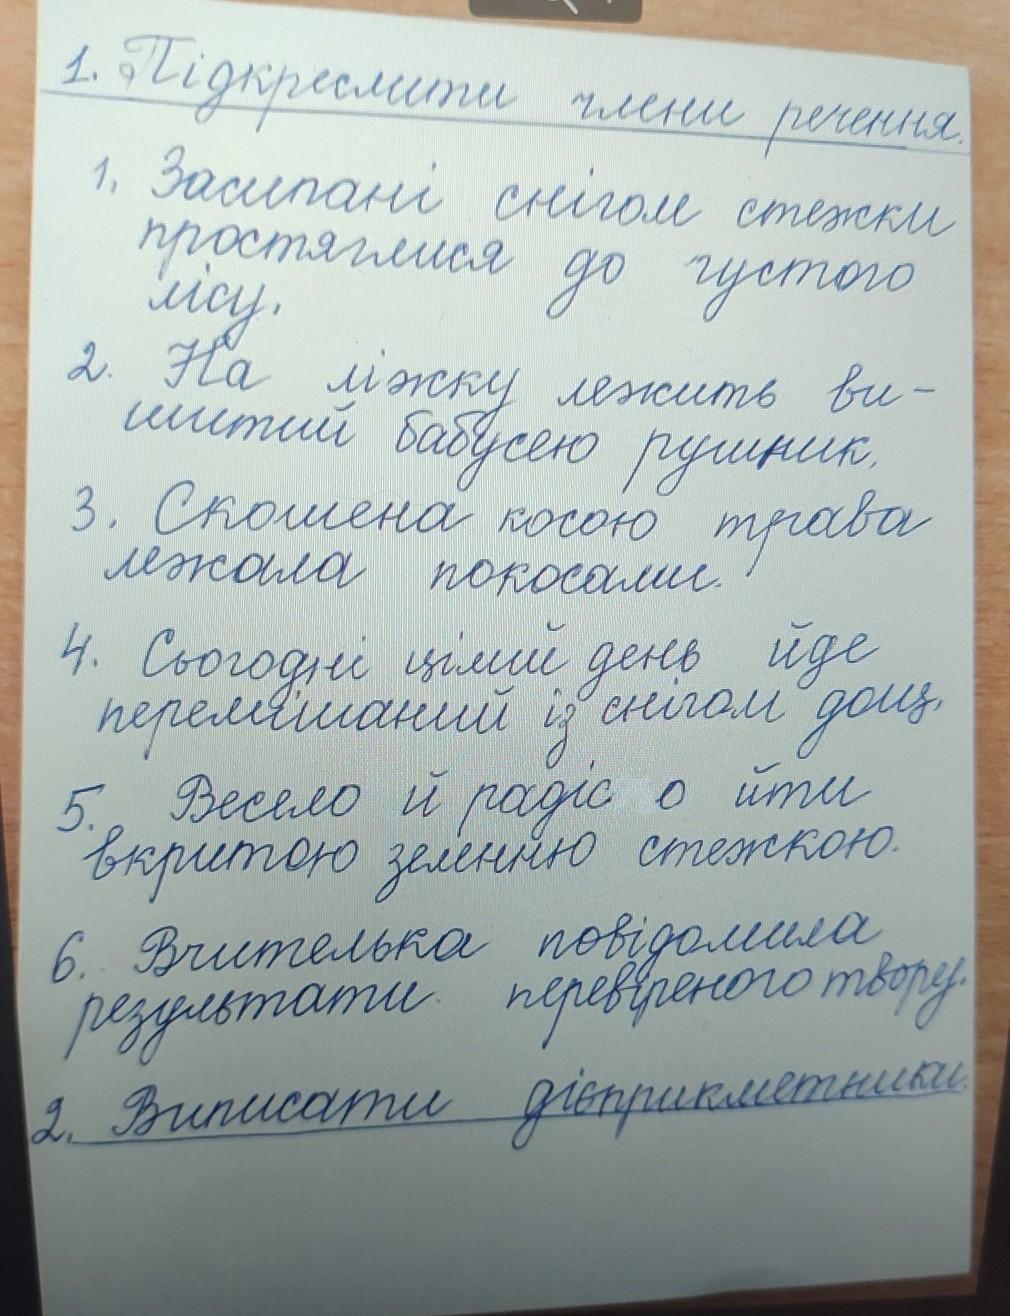 1. Підкреслити члени речення.
1. Засипані снігом стежки
простяглися до густого
лісу.
2. На ліжку лежить ви-
шитий бабусею рушник.
3. Скошена косою трава
лежала покосами.
4. Сьогодні цілий день йде
перемішаний із снігом дощ.
5. Весело й радіс о йти
вкритою зеленню стежкою.
6. Вчителька повідомила
результати перевіреного твору.
2. Виписати дієприкметники.